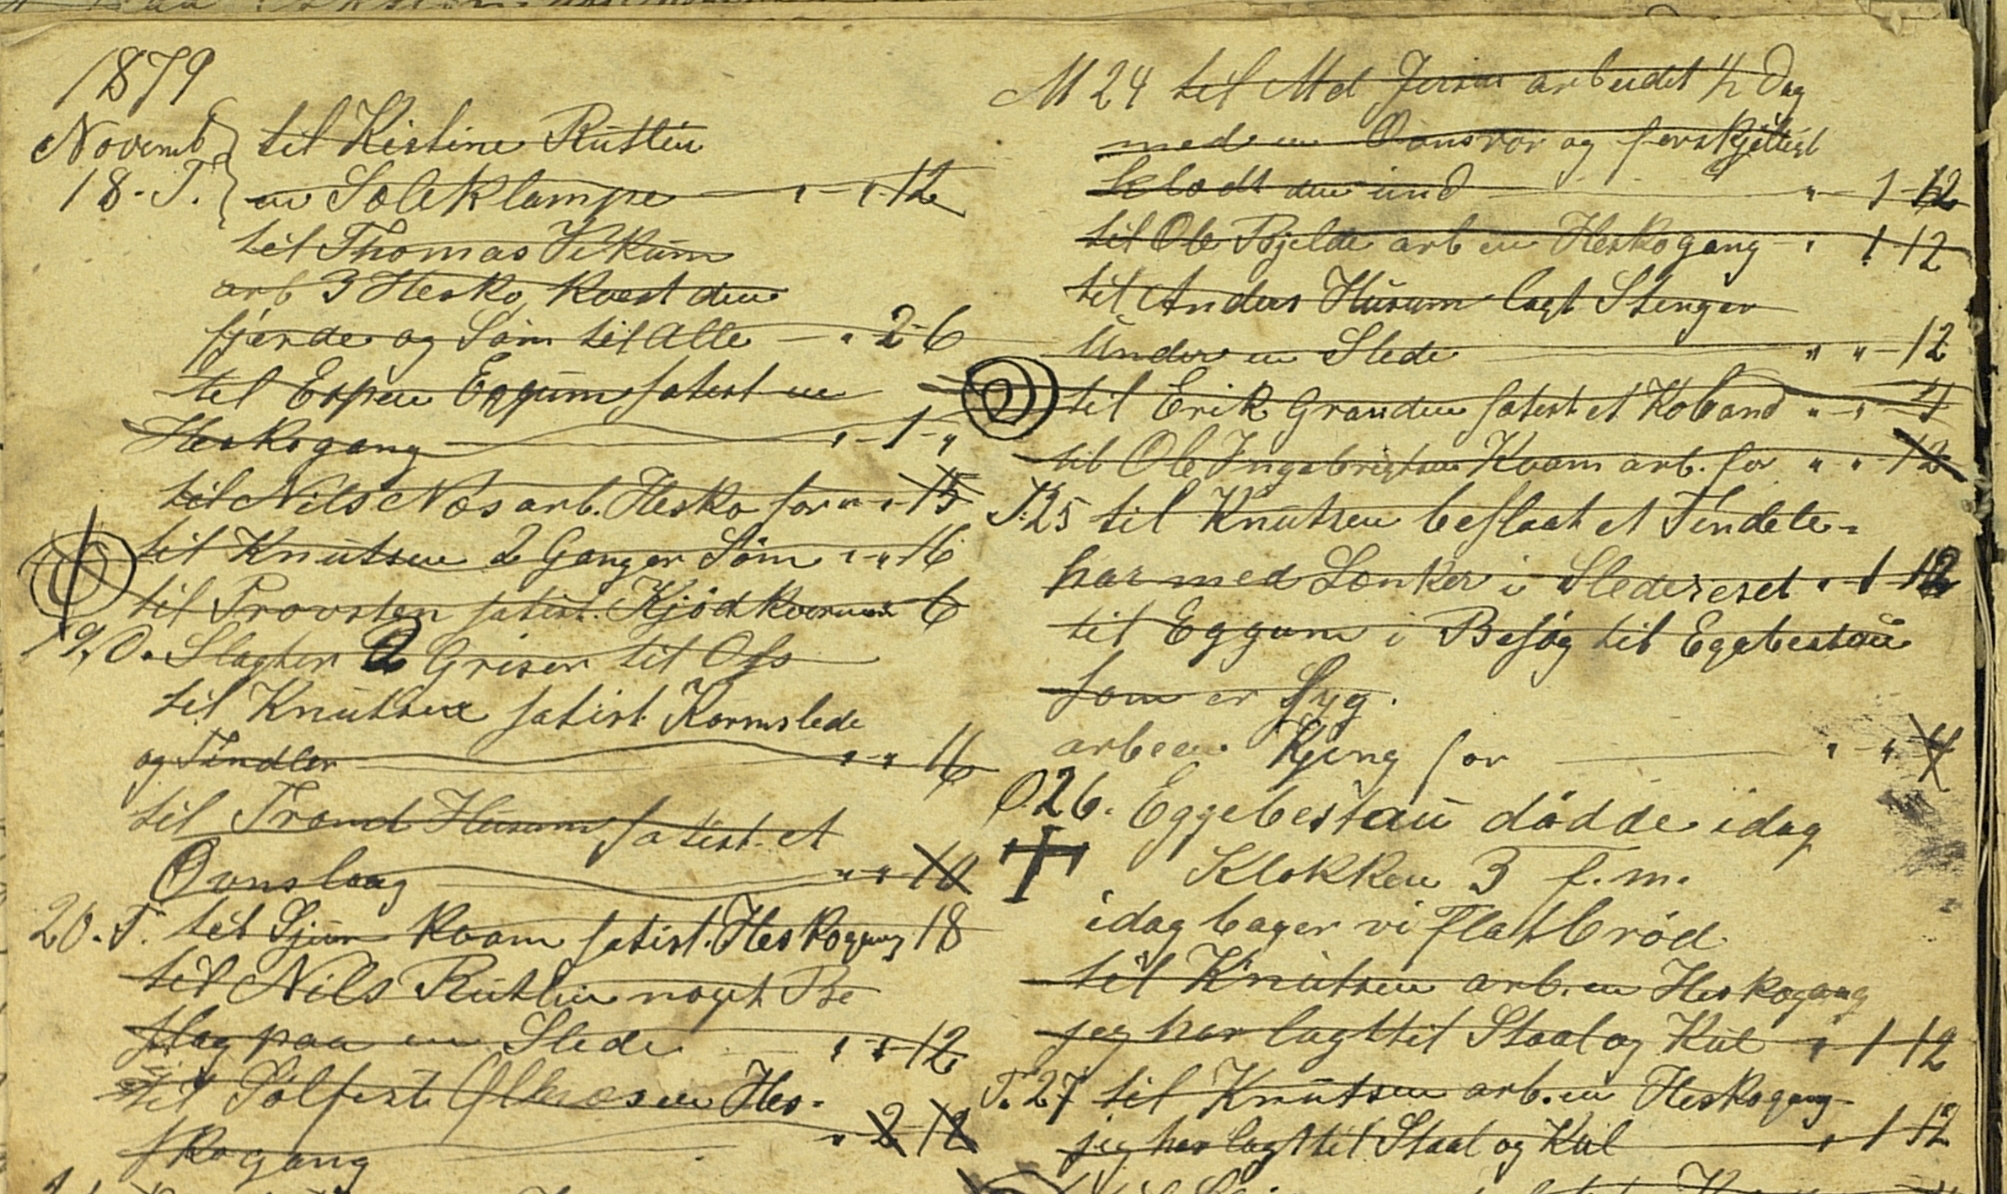 1879
Novemb
18. T.
til Kistine Rutlin
en Soleklampe " " 12
til Thomas Vikum
arb 3 Hesko, kvest den
fjerde og Søm til alle " 2 6
til Espen Eggum satist en
Heskogang " 1 "
til Nils Næs arb. Hesko for " " 15
til Knutsen 2 Ganger Søm " " 16
til Provsten satist. Kjødkværnen 6
19, O. Slagter 2 Griser til Oss
til Knutsen satist Karmslede
og Tindler " " 16
til Trond Husum satist et
Ovnslaag " " 10
20. T. til Sjur Kvam satist. Heskogang 18
til Nils Rutlin noget Be
slag paa en Slede " " 12
til Sølfest Hes-
skogang " 2 12
M 24 til Md arbeidet ½ Dag
med en Ovnsrør og
klodt den ind " 1 12
til Ole Bjelde arb en Heskogang " 1 12
til Anders Husum lagt Stenger
under en Slede " " 12
til Erik Granden satist et Koband " " 4
til Ole Ingebrigtsen Kvam arb. for " " 12
T. 25 til Knutsen beslaat et Tindele-
har med Lænker i Sledereset " 1 12
til Eggum i Besøg til Eggebestau
som er Syg.
arb en Kjeng for " " 4
O. 26. Eggebestau dødde idag
Klokken 3 f. m.
idag bager vi Flatbrød
til Knutsen arb. en Heskogang
jeg har lagt til Staal og Kul " 1 12
T. 27 til Knutsen arb. en Heskogang
jeg har lagt til Staal og Kul " 1 12